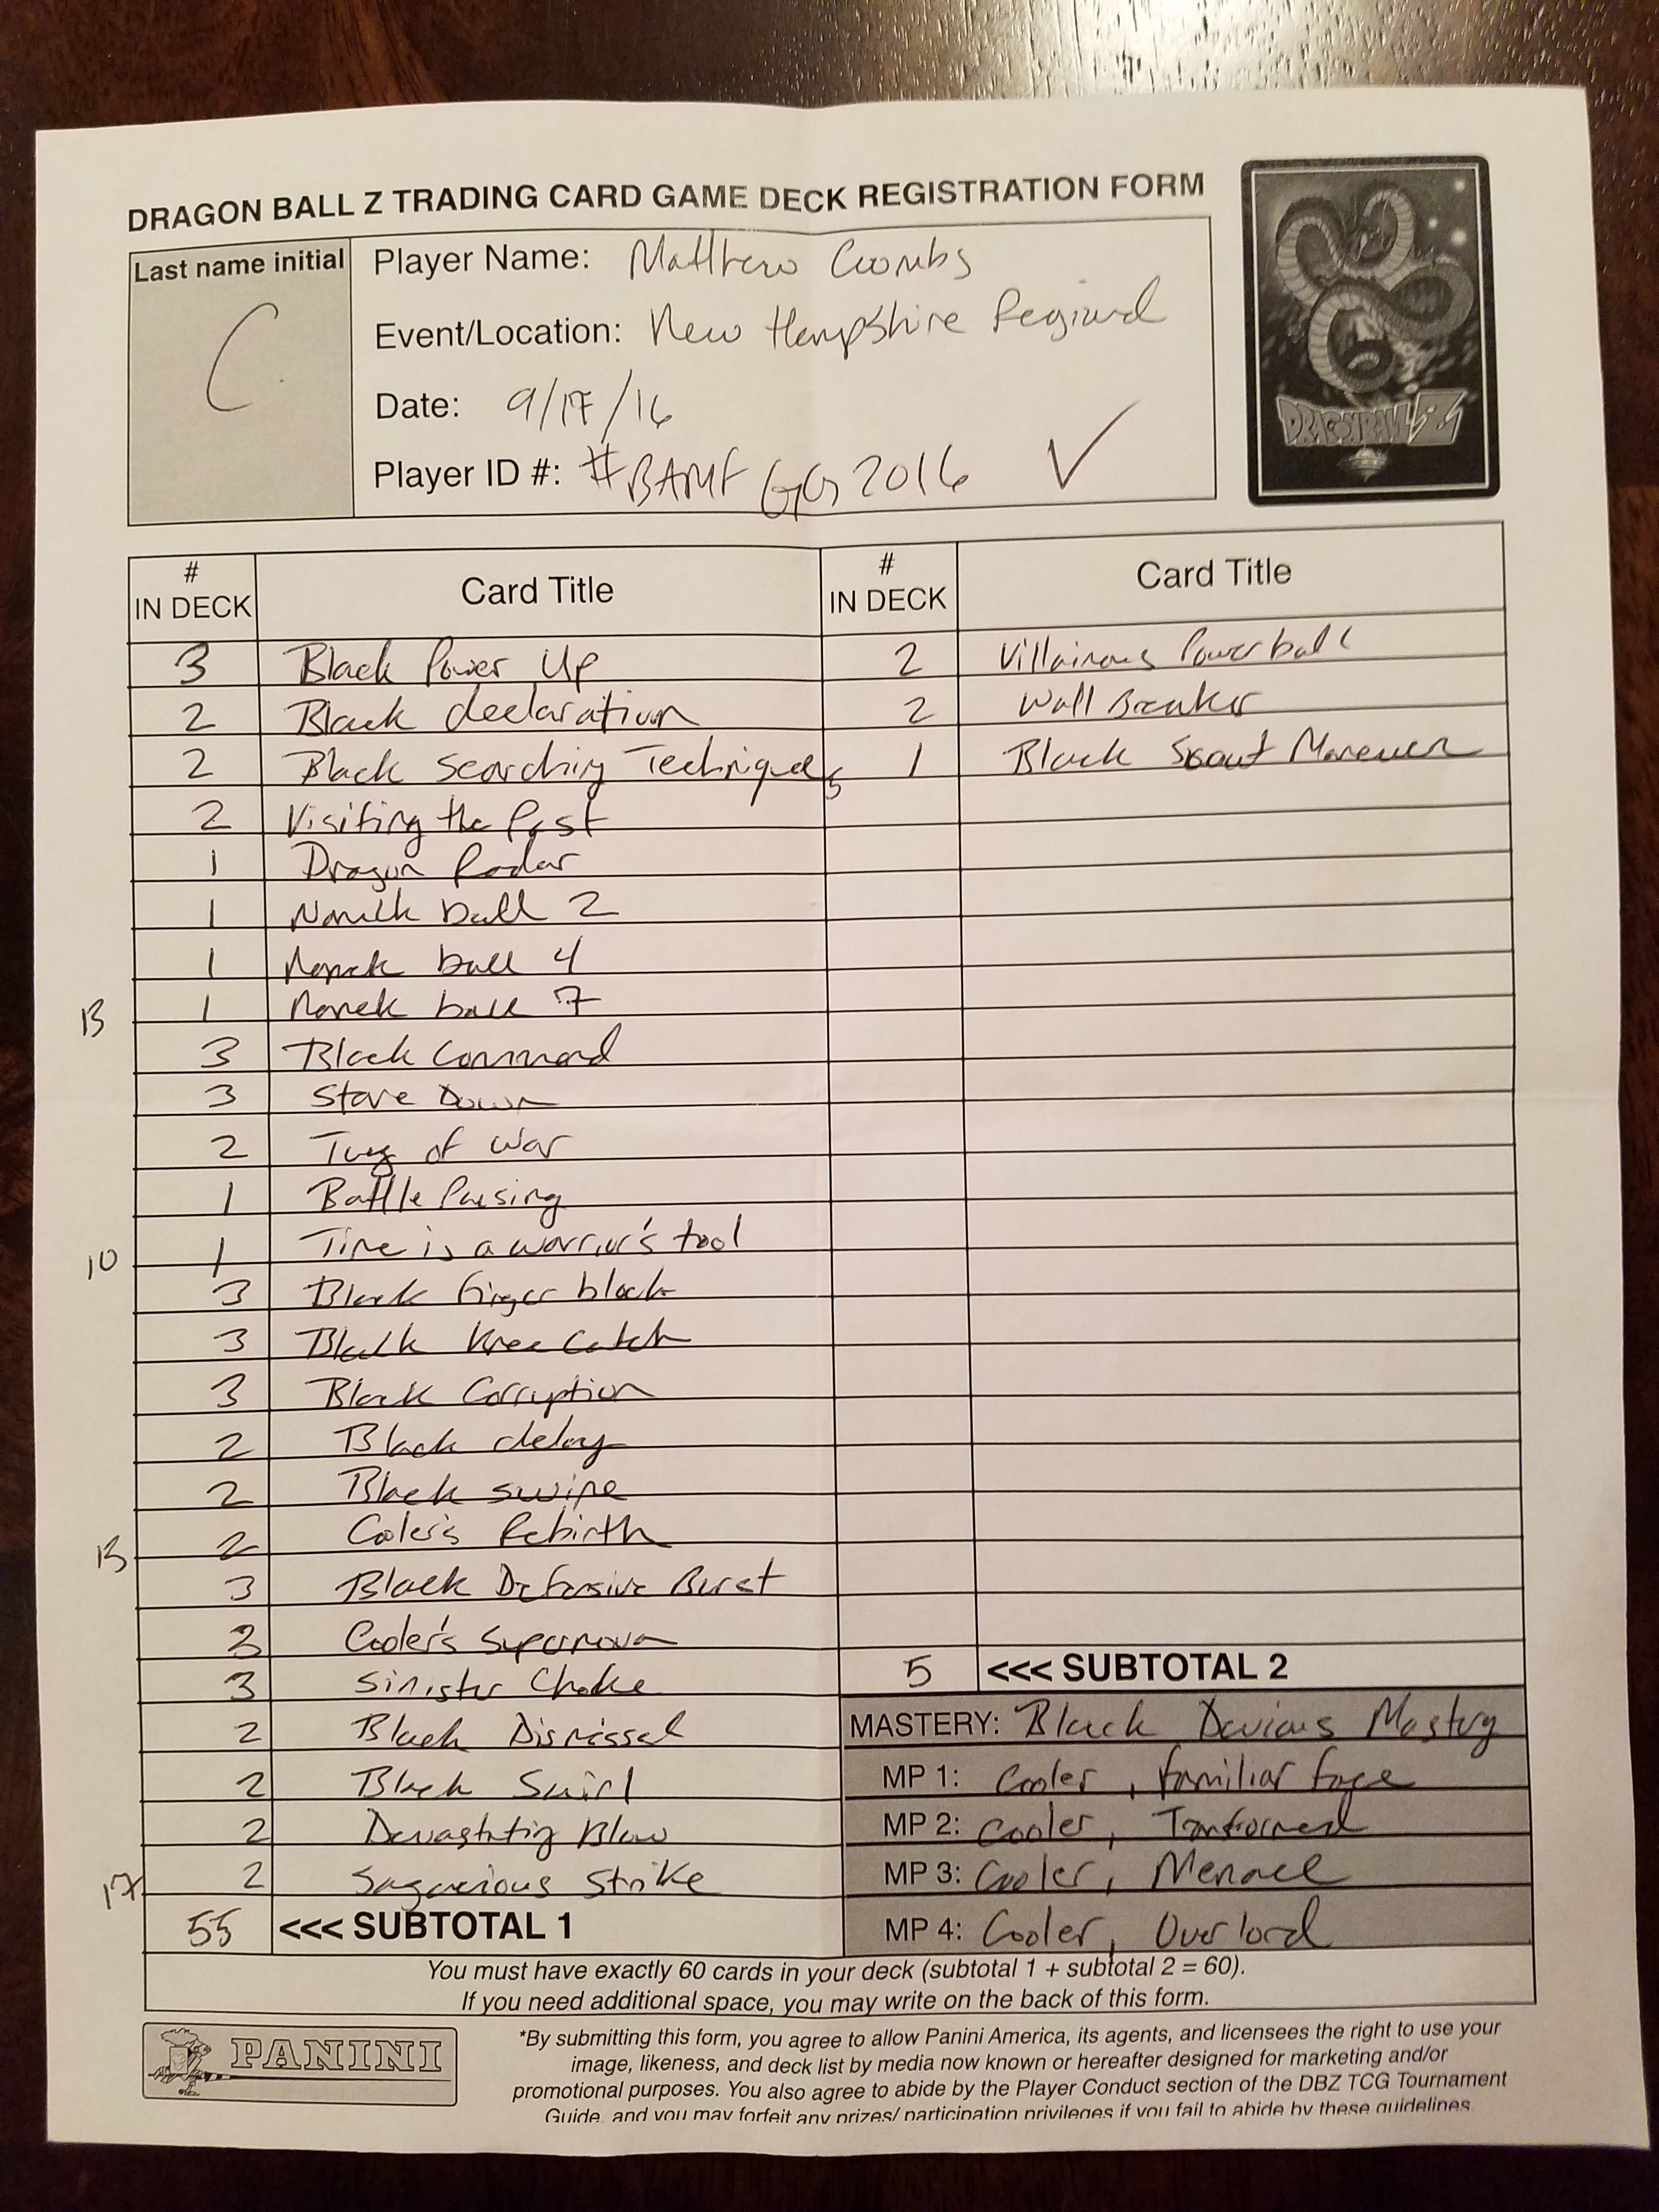 DRAGON BALL Z TRADING CARD GAME DECK REGISTRATION FORM
Last name initial
C
Player Name: Matthew Coombs
Event/Location: New Hampshire Regional
Date: 9/17/16
Player ID #: #BAMF GG 2016 ✓
DRAGONBALL Z
# IN DECK Card Title
3 Black Power Up
2 Black declaration
2 Black Searching Techniques
2 Visiting the Past
1 Dragon Radar
1 Namek ball 2
1 Namek ball 4
13 1 Namek ball 7
3 Black Command
3 Stare Down
2 Tug of war
1 Battle Pausing
10 1 Time is a warrior's tool
3 Black finger block
3 Black Knee Catch
3 Black Corruption
2 Black delay
2 Black swipe
15 2 Cooler's Rebirth
3 Black Defensive Burst
3 Cooler's Supernova
3 Sinister Choke
2 Black Dismissal
2 Black Swirl
2 Devastating Blow
17 2 Sagacious Strike
55 <<< SUBTOTAL 1
# IN DECK Card Title
2 Villainous Powerball
2 Wall Breaker
1 Black Scout Maneuver
5 <<< SUBTOTAL 2
MASTERY: Black Devious Mastery
MP 1: Cooler, familiar face
MP 2: Cooler, Transformed
MP 3: Cooler, Menace
MP 4: Cooler, Overlord
You must have exactly 60 cards in your deck (subtotal 1 + subtotal 2 = 60).
If you need additional space, you may write on the back of this form.
PANINI
*By submitting this form, you agree to allow Panini America, its agents, and licensees the right to use your
image, likeness, and deck list by media now known or hereafter designed for marketing and/or
promotional purposes. You also agree to abide by the Player Conduct section of the DBZ TCG Tournament
Guide, and you may forfeit any prizes/ participation privileges if you fail to abide by these guidelines.